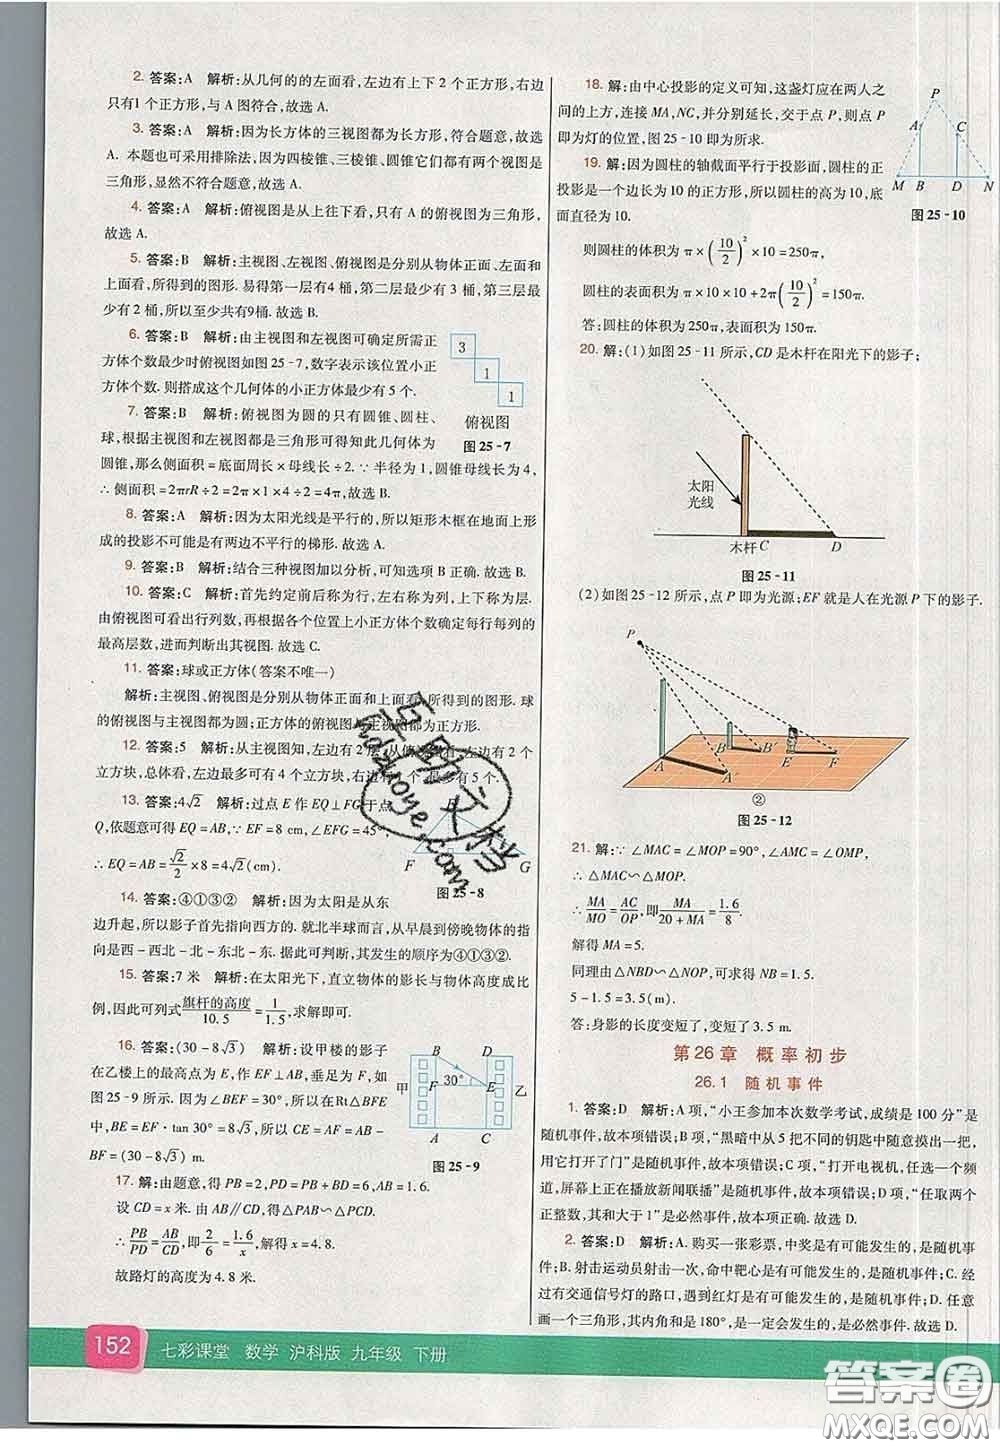 2. 答案:A 解析:从几何的的左面看,左边有上下 2 个正方形,右边
只有1 个正方形,与 A 图符合,故选 A.
3. 答案:A 解析:因为长方体的三视图都为长方形,符合题意,故选
A. 本题也可采用排除法,因为四棱锥、三棱锥、圆锥它们都有两个视图是
三角形,显然不符合题意,故选 A.
4. 答案:A 解析:俯视图是从上往下看,只有 A 的俯视图为三角形,
故选 A.
5. 答案:B 解析:主视图、左视图、俯视图是分别从物体正面、左面和
上面看,所得到的图形. 易得第一层有4 桶,第二层最少有 3 桶,第三层最
少有 2 桶,所以至少共有9桶. 故选 B.
6. 答案:B 解析:由主视图和左视图可确定所需正
方体个数最少时俯视图如图 25-7,数字表示该位置小正
方体个数. 则搭成这个几何体的小正方体最少有 5 个.
3
1
1
俯视图
图 25-7
7. 答案:B 解析:俯视图为圆的只有圆锥、圆柱、
球,根据主视图和左视图都是三角形可得知此几何体为
圆锥,那么侧面积=底面周长×母线长÷2. ∵ 半径为 1,圆锥母线长为 4,
∴ 侧面积=2πrR÷2=2π×1×4÷2=4π,故选 B.
8. 答案:A 解析:因为太阳光线是平行的,所以矩形木框在地面上形
成的投影不可能是有两边不平行的梯形. 故选 A.
9. 答案:B 解析:结合三种视图加以分析,可知选项 B 正确. 故选 B.
10. 答案:C 解析:首先约定前后称为行,左右称为列,上下称为层.
由俯视图可看出行列数,再根据各个位置上小正方体个数确定每行每列的
最高层数,进而判断出其视图. 故选 C.
11. 答案:球或正方体(答案不唯一)
解析:主视图、俯视图是分别从物体正面和上面看,所得到的图形. 球
的俯视图与主视图都为圆;正方体的俯视图与主视图都为正方形.
12. 答案:5 解析:从主视图知,左边有 2 层,从俯视图看,左边有 2 个
立方块,总体看,左边最多可有 4 个立方块,右边有 1 个,最多有 5 个.
13. 答案:4√2 解析:过点 E 作 EQ⊥FG于点
Q,依题意可得 EQ=AB,∵ EF=8 cm,∠EFG=45°,
∴ EQ=AB=√2/2×8=4√2(cm).
F G
图 25-8
14. 答案:④①③② 解析:因为太阳是从东
边升起,所以影子首先指向西方的. 就北半球而言,从早晨到傍晚物体的指
向是西-西北-北-东北-东. 据此可判断,其发生的顺序④①③②.
15. 答案:7 米 解析:在太阳光下,直立物体的影长与物体高度成比
例,因此可列式旗杆的高度/10.5=1/1.5,求解即可.
16. 答案:(30-8√3) 解析:设甲楼的影子
在乙楼上的 E 处,作 EF⊥AB,垂足为 F,如图
25-9 所示. 因为∠BEF=30°,所以在Rt△BFE
中,BE=EF·tan 30°=8√3,所以 CE=AF=AB-
BF=(30-8√3)m.
B D
甲 F 30° E 乙
A C
图 25-9
17. 解:由题意,得 PB=2 m,PD=6 m,AB=1.6 m.
设 CD=x 米. 由 AB∥CD,得△PAB∽△PCD.
∴PB/PD=AB/CD,即2/6=1.6/x,解得 x=4.8.
故路灯的高度为 4.8 米.
18. 解:由中心投影的定义可知,这盏灯应在两人之
间的上方,连接 MA,NC,并分别延长,交于点 P,则点 P
即为灯的位置,图 25-10 即为所求.
P
A C
M B D N
图 25-10
19. 解:因为圆柱的轴截面平行于投影面,圆柱的正
投影是一边长为 10 的正方形,所以圆柱的高为 10,底
面直径为 10.
则圆柱的体积为 π×(10/2)²×10=250π,
圆柱的表面积为 π×10×10+2π(10/2)²=150π.
答:圆柱的体积为 250π,表面积为 150π.
20. 解:(1)如图 25-11 所示,CD 是木杆在阳光下的影子;
太阳
光线
木杆 C D
图 25-11
(2)如图 25-12 所示,点 P 即为光源;EF 就是人在光源 P 下的影子.
P
A A′ B B′ E F
②
图 25-12
21. 解:∵ ∠MAC=∠MOP=90°,∠AMC=∠OMP,
∴ △MAC∽△MOP.
∴ MA/MO=AC/OP,即MA/20+MA=1.6/8.
解得 MA=5.
同理由△NBD∽△NOP,可求得 NB=1.5.
5-1.5=3.5(m).
答:身影的长度变短了,变短了 3.5 m.
第 26 章 概率初步
26.1 随机事件
1. 答案:D 解析:A 项,“小王参加本次数学考试,成绩是 100 分”是
随机事件,故本项错误;B 项,“黑暗中从 5 把不同的钥匙中随意摸出一把,
用它打开了门”是随机事件,故本项错误;C 项,“打开电视机,任选一个频
道,屏幕上正在播放新闻联播”是随机事件,故本项错误;D 项,“任取两个
正整数,其和大于 1”是必然事件,故本项正确. 故选 D.
2. 答案:D 解析:A. 购买一张彩票,中奖是有可能发生的,是随机事
件;B. 射击运动员射击一次,命中靶心是有可能发生的,是随机事件;C. 经
过有交通信号灯的路口,遇到红灯是有可能发生的,是随机事件;D. 任意
画一个三角形,其内角和是 180°,是一定发生的,是必然事件,故选 D.
152 七彩课堂 数学 沪科版 九年级 下册
答案圈
MXQE.COM